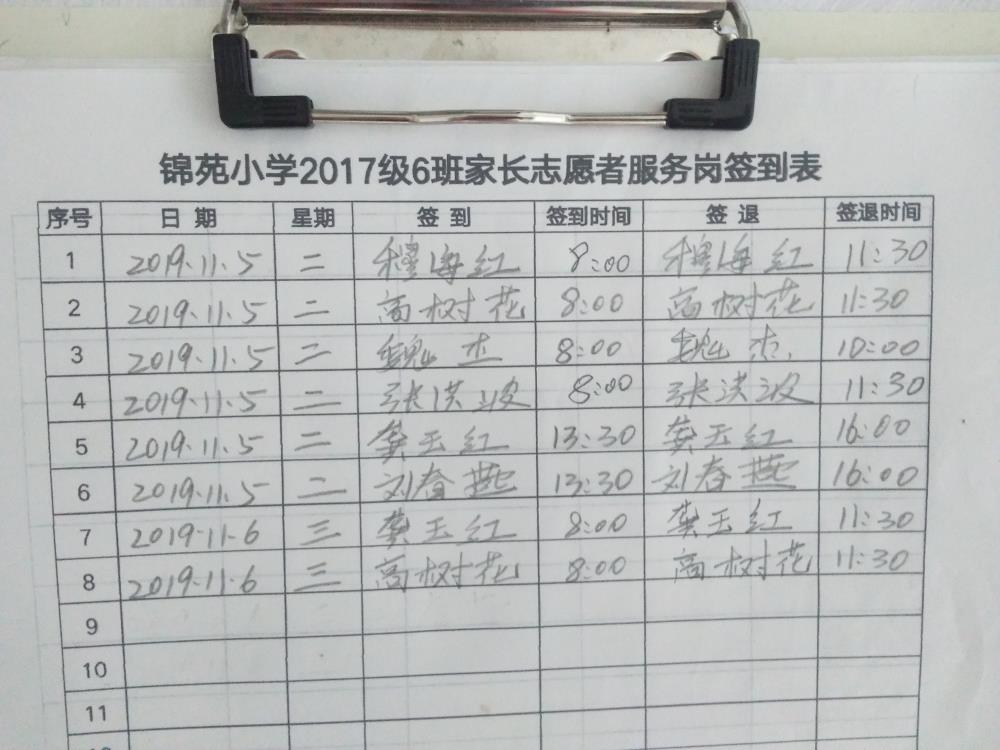 锦苑小学2017级6班家长志愿者服务岗签到表
序号 日期 星期 签到 签到时间 签退 签退时间
1 2019.11.5 二 穆海红 8:00 穆海红 11:30
2 2019.11.5 二 高树花 8:00 高树花 11:30
3 2019.11.5 二 魏杰 8:00 魏杰 10:00
4 2019.11.5 二 张洪波 8:00 张洪波 11:30
5 2019.11.5 二 龚玉红 13:30 龚玉红 16:00
6 2019.11.5 二 刘春燕 13:30 刘春燕 16:00
7 2019.11.6 三 龚玉红 8:00 龚玉红 11:30
8 2019.11.6 三 高树花 8:00 高树花 11:30
9
10
11